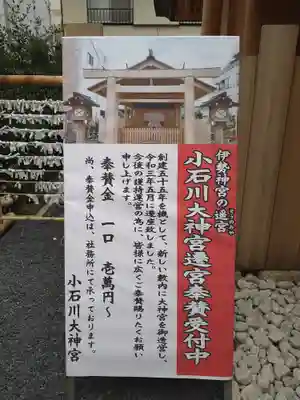 伊勢神宮の遥宮
小石川大神宮遷宮奉賛受付中
創建五十五年を機として、新しい敷内に大神宮を御造営し、
令和三年五月に遷座致しました。
今後の護持運営の為に、皆様に広くご奉賛賜りたくお願い
申し上げます。
奉賛金 一口 壱萬円~
尚、奉賛金申込は、社務所にて承っております。
小石川大神宮